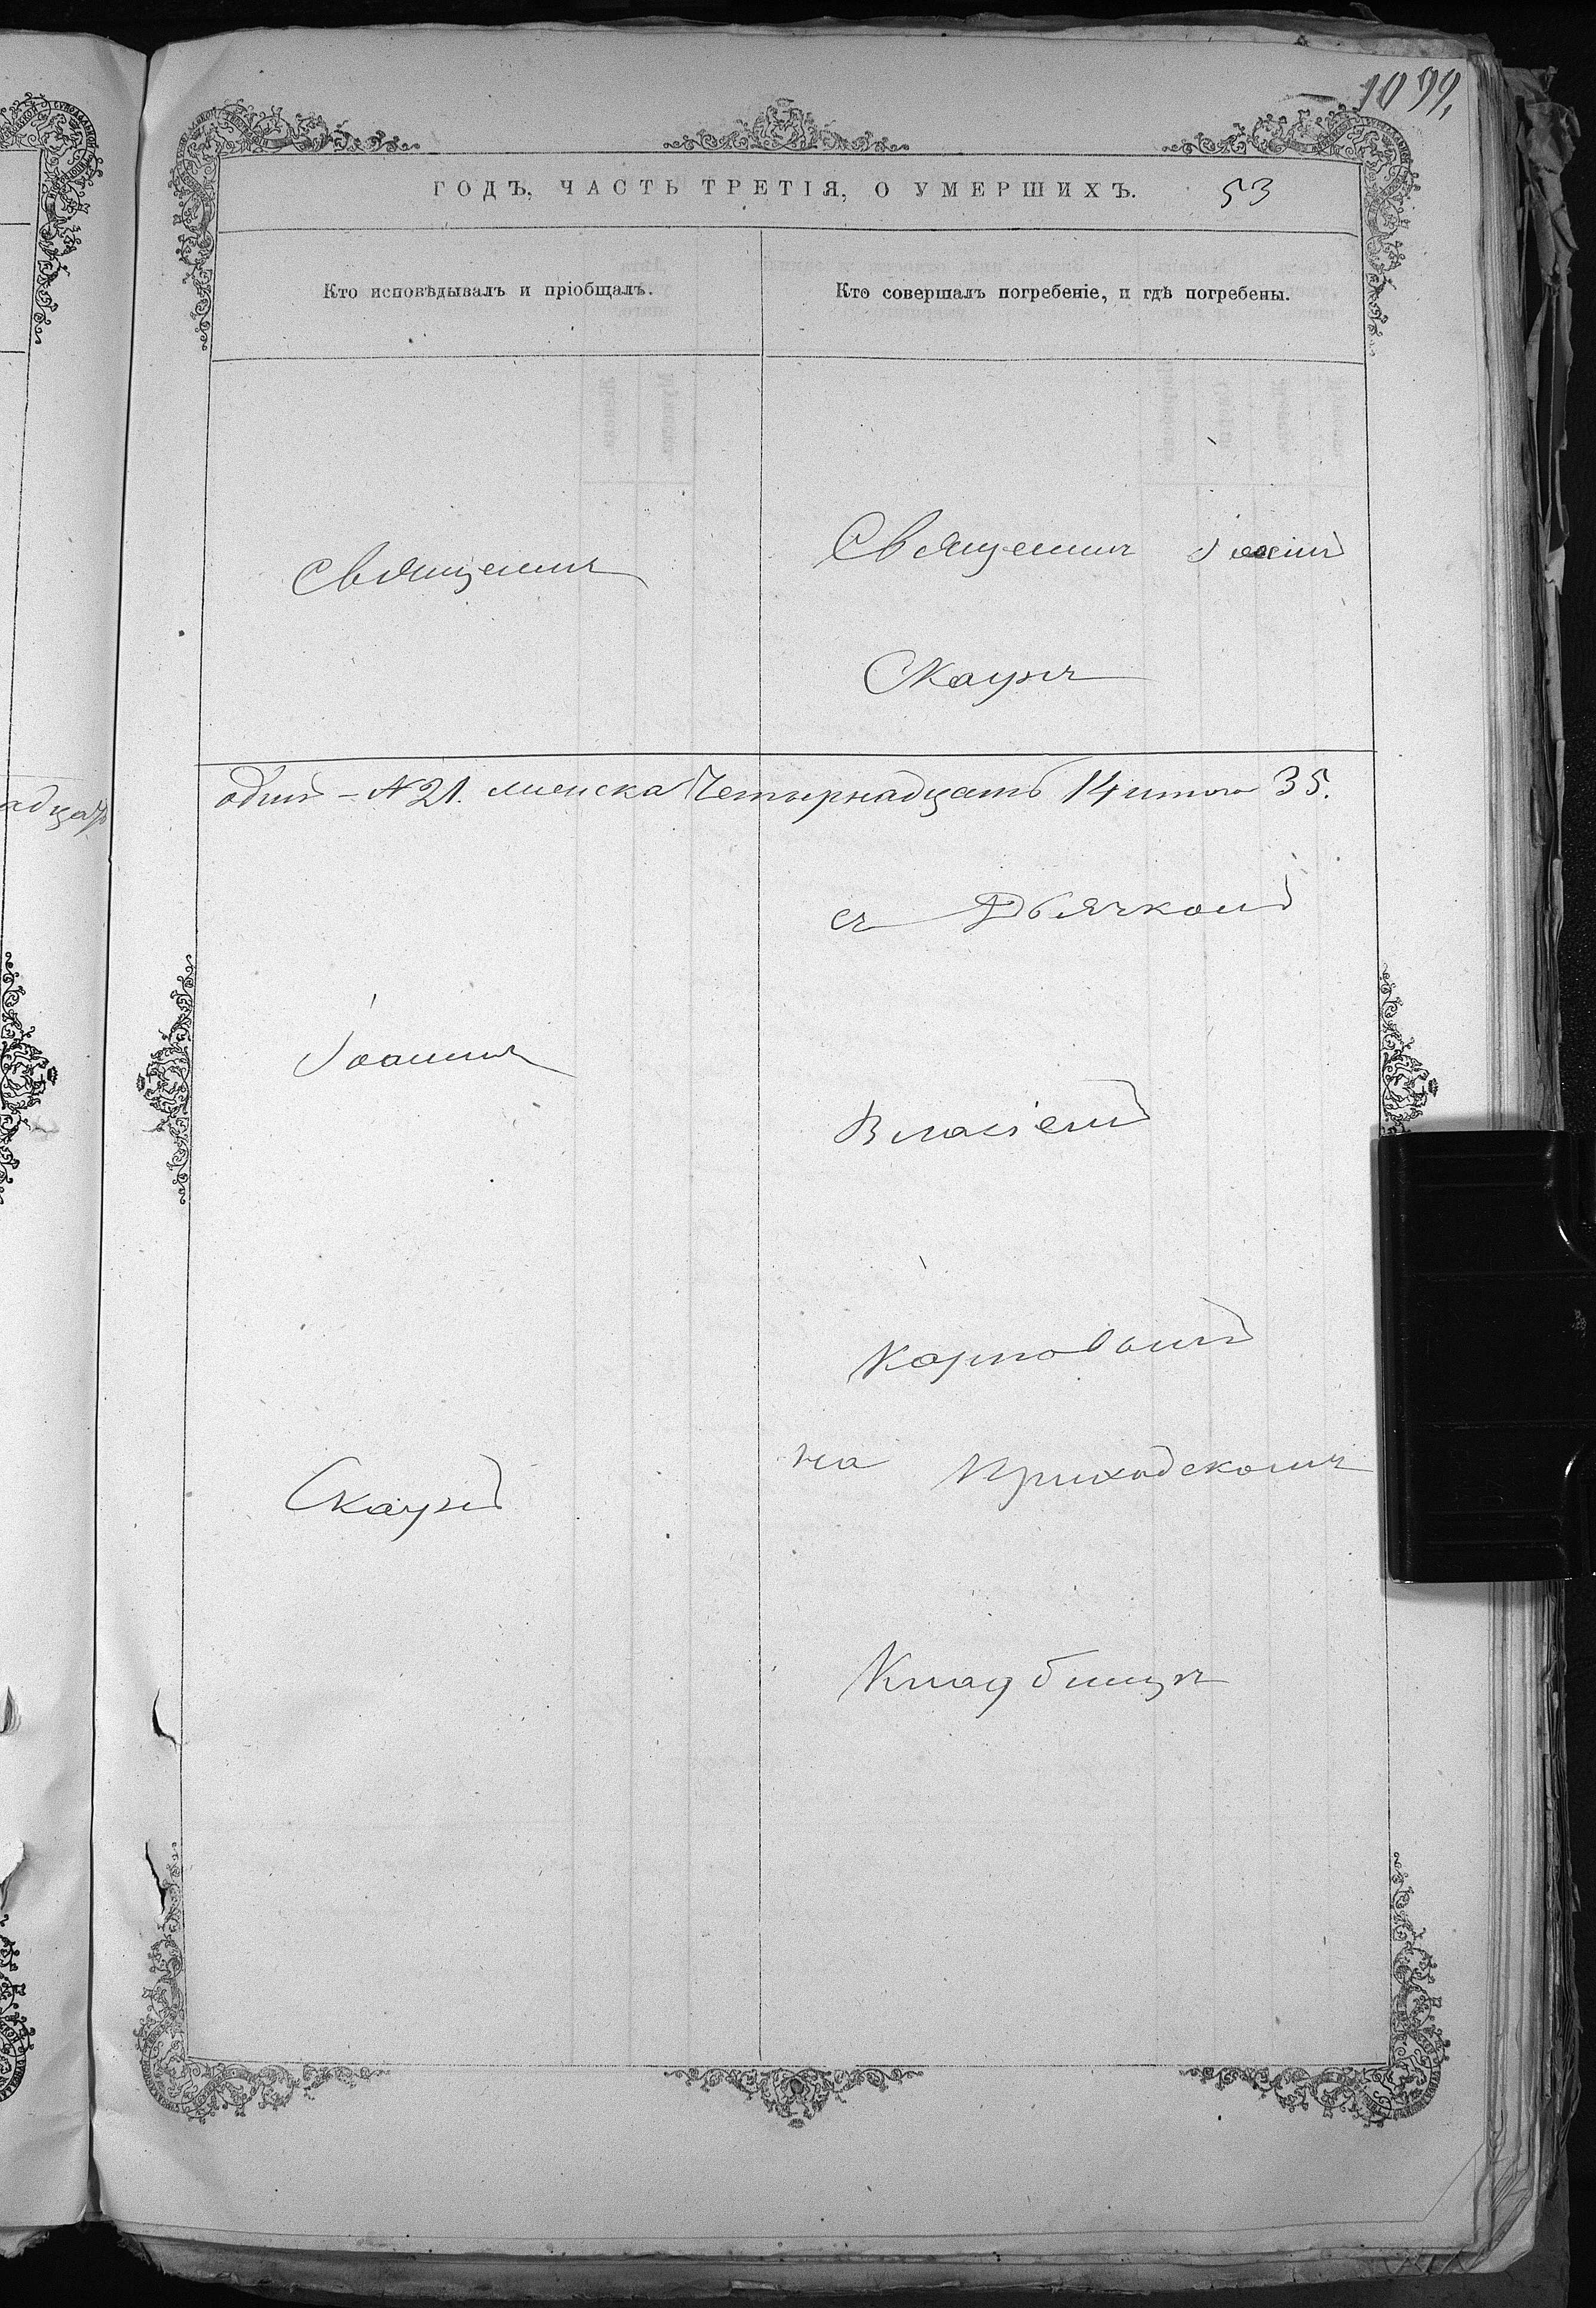 1099.
ГОДЪ, ЧАСТЬ ТРЕТІЯ, О УМЕРШИХЪ. 53
Кто исповѣдывалъ и пріобщалъ.
Кто совершалъ погребеніе, и гдѣ погребены.
Священникъ
Священникъ
Скаунъ
адцать
одинъ – № 21. женска Четырнадцать 14 итого 35.
съ Дьячкомъ
Іоаннъ
Власіемъ
Карповымъ
Скаунъ
на Приходскомъ
Кладбищѣ